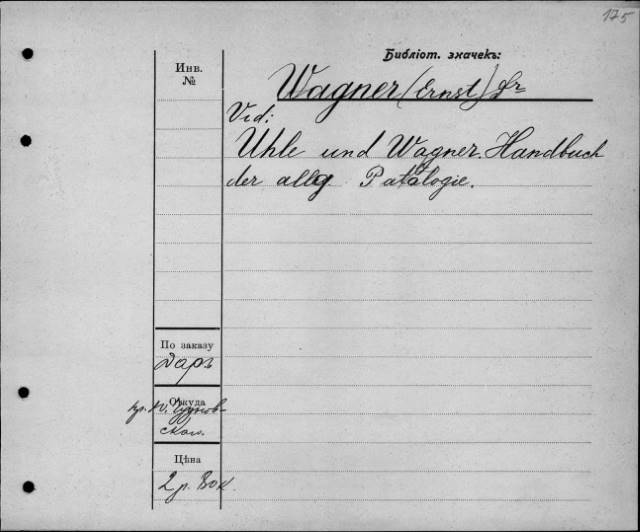 175
Библіот. значекъ:
Инв.
№
Wagner (Ernst) Dr
Vid:
Uhle und Wagner. Handbuch
der allg. Patalogie.
По заказу
Даръ
Откуда
скаго.
Цѣна
2 р. 80 к.